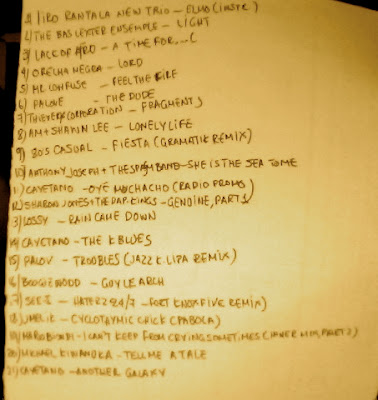 1) IIRO RANTALA NEW TRIO - ELMO (INSTR.)
2) THE BAS LEXTER ENSEMPLE - LIGHT
3) LACK OF AFRO - A TIME FOR...(
4) ORELHA NEGRA - LORD
5) MR CONFUSE - FEEL THE FIRE
6) PALOVE - THE DUDE
7) THIEVERY CORPORATION - FRAGMENTS
8) AM + SHAWN LEE - LONELY LIFE
9) 80'S CASUAL - FIESTA (GRAMATIK REMIX)
10) ANTHONY JOSEPH + THE SPASM BAND - SHE IS THE SEA TO ME
11) CAYETANO - OYÉ MUCHACHO (RADIO PROMO)
12) SHARON JONES + THE DAP-KINGS - GENUINE, PART 1
3) LOSSY - RAIN CAME DOWN
14) CAYETANO - THE K BLUES
15) PALOV - TROUBLES (JAZZ K. LIPA REMIX)
16) BOOGIE WOOD - GOYLE ARCH
17) SEE-I - HATERZ 24/7 - FORT KNOX FIVE REMIX)
18) - CYCLOTHYMIC CHICK (PABOLA)
19) MARIO BIONDI - I CAN'T KEEP FROM CRYING SOMETIMES (
20) MICHAEL KIWANUKA - TELL ME A TALE
21) CAYETANO - ANOTHER GALAXY